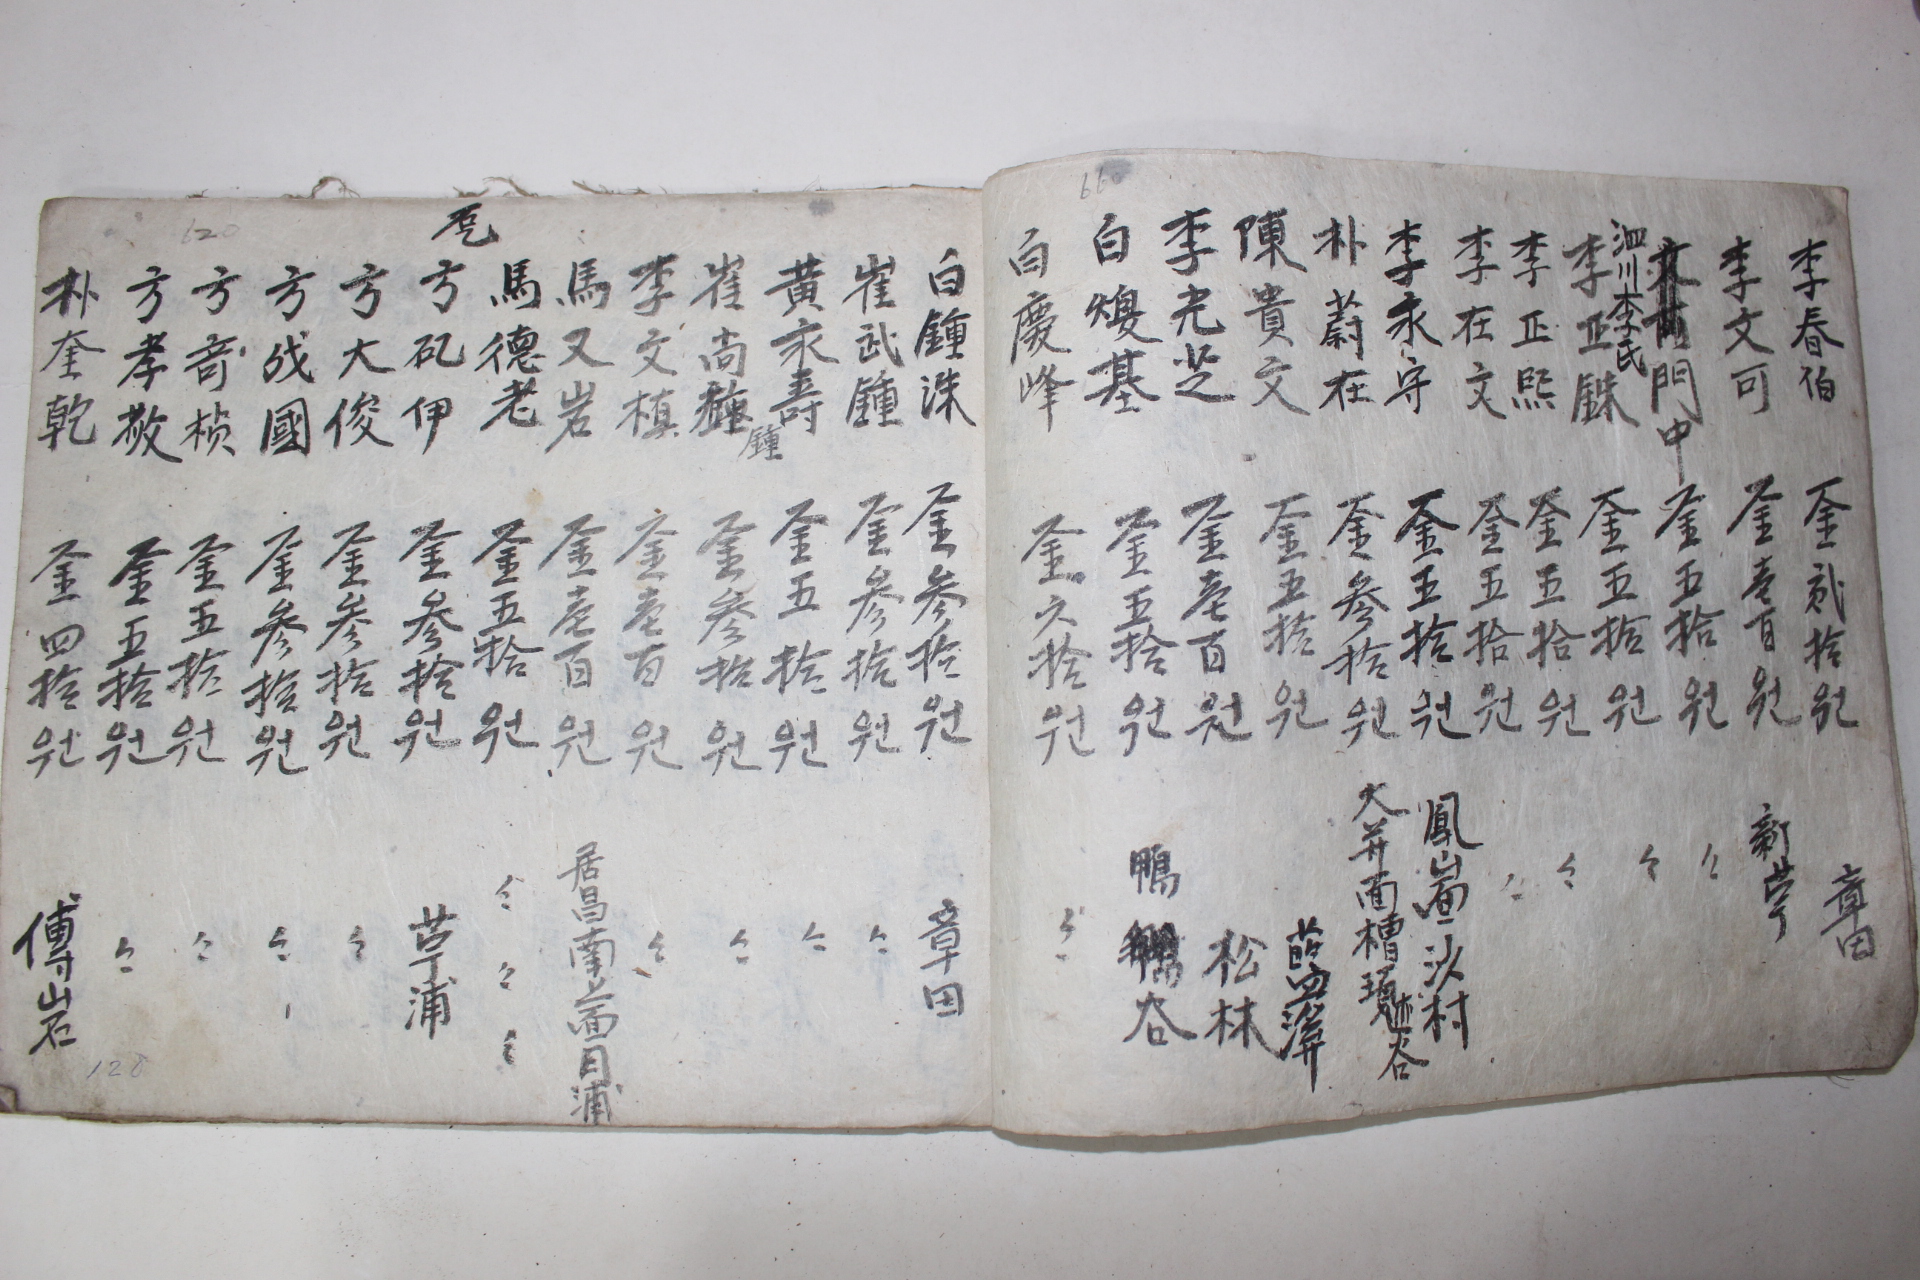 66
李春伯 金貳拾원 章田
李文可 金壹百원 新芧
泗川李氏門中 金五拾원 〻
李正銖 金五拾원 〻
李正熙 金五拾원 〻
李在文 金五拾원 〻
李永守 金五拾원 鳳山面沙村
朴蔚在 金參拾원 大并面槽 谷
陳貴文 金五拾원
李光芝 金壹百원 松林
白煥基 金五拾원 鴨谷
白慶峰 金六拾원 〻
620
白鍾洙 金參拾원 章田
崔武鍾 金參拾원 〻
黃永壽 金五拾원 〻
崔尚鍾 金參拾원 〻
李文植 金壹百원 〻
馬又岩 金壹百원 居昌南上面目浦
馬德老 金五拾원 〻〻〻
方矶伊 金參拾원 芧浦
方大俊 金參拾원 〻
方戊國 金參拾원 〻
方奇楨 金五拾원 〻
方孝敬 金五拾원 〻
朴奎乾 金四拾원 傅岩
128